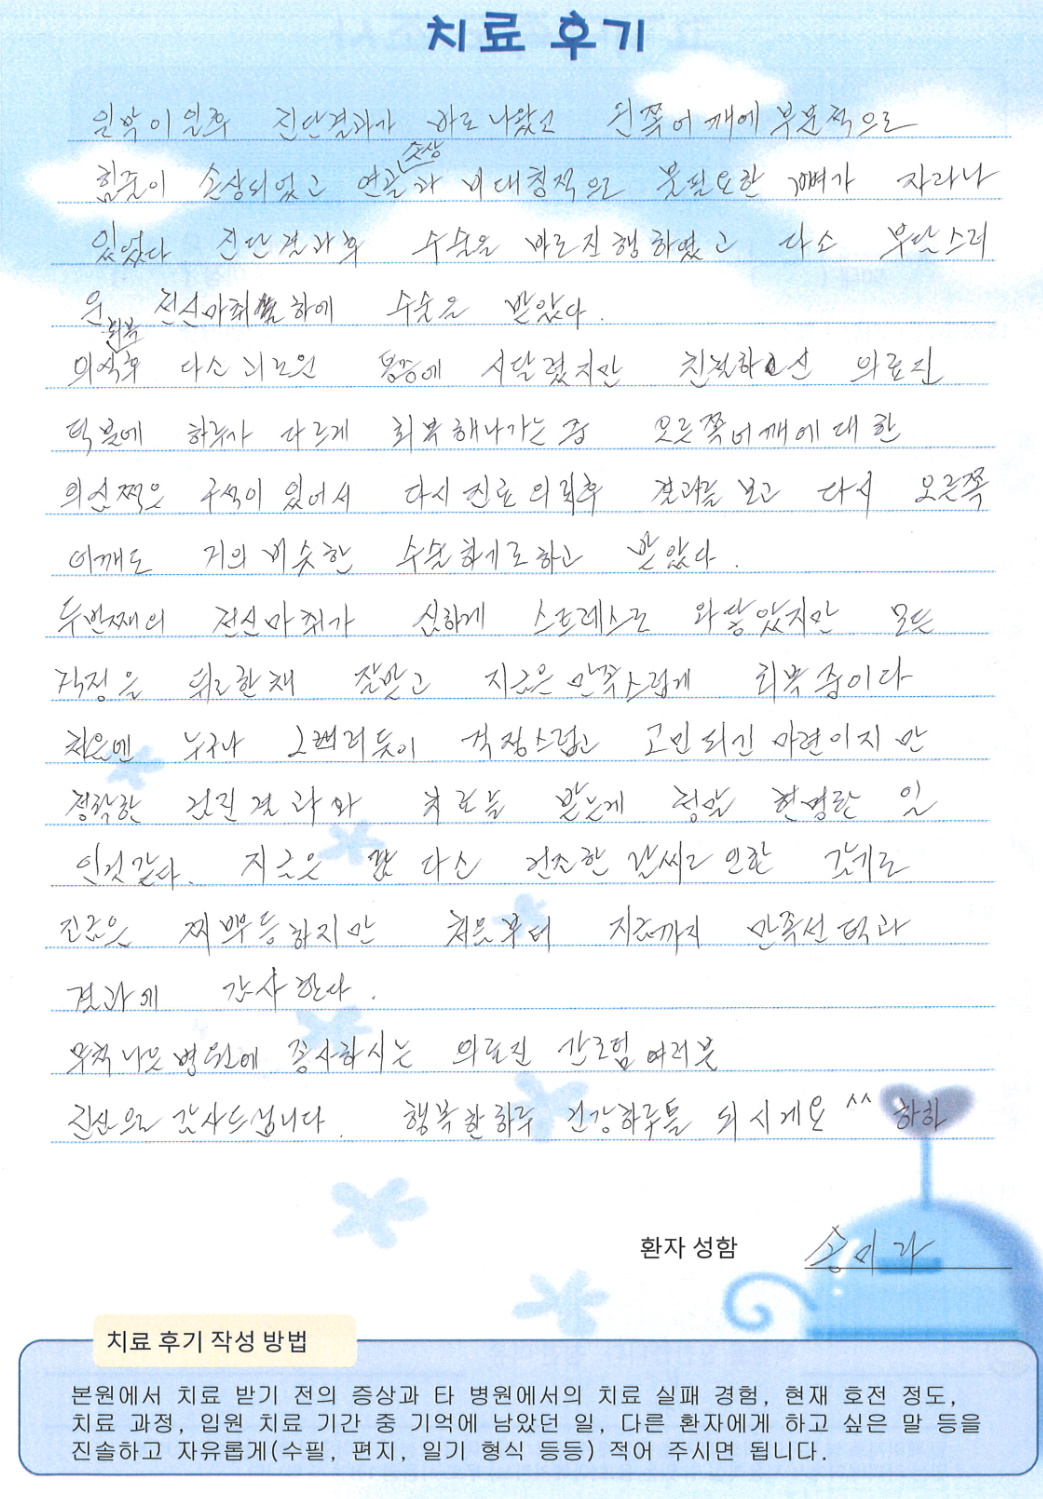 치료 후기
일박이일후 진단결과가 바로나왔고 왼쪽어깨에 부분적으로
힘줄이 손상되었고 연골손상과 비대칭적으로 불필요한 뼈가 자라나
있었다 진단결과후 수술을 바로진행하였고 다소 부담스러
운 전신마취하에 수술을 받았다.
의식회복후 다소 괴로운 통증에 시달렸지만 친절하신 의료진
덕분에 하루가 다르게 회복해나가는중 오른쪽어깨에 대한
의심쩍은 구석이 있어서 다시 진료의뢰후 결과를 보고 다시 오른쪽
어깨도 거의 비슷한 수술하기로하고 받았다.
두번째의 전신마취가 심하게 스트레스로 와닿았지만 모든
걱정을 뒤로한채 잘받고 지금은 만족스럽게 회복중이다
처음엔 누구나 그러듯이 걱정스럽고 고민되긴 마련이지만
정확한 검진결과와 치료를 받는게 정말 현명한 일
인것같다. 지금은 다소 건조한 날씨로인한 감기로
지금은 찌뿌등하지만 처음부터 지금까지 만족선택과
결과에 감사한다.
무척나은병원에 종사하시는 의료진 간호팀 여러분
진심으로 감사드립니다. 행복한하루 건강하루들 되시게요 ^^ 하하
환자 성함 송미라
치료 후기 작성 방법
본원에서 치료 받기 전의 증상과 타 병원에서의 치료 실패 경험, 현재 호전 정도,
치료 과정, 입원 치료 기간 중 기억에 남았던 일, 다른 환자에게 하고 싶은 말 등을
진솔하고 자유롭게(수필, 편지, 일기 형식 등등) 적어 주시면 됩니다.